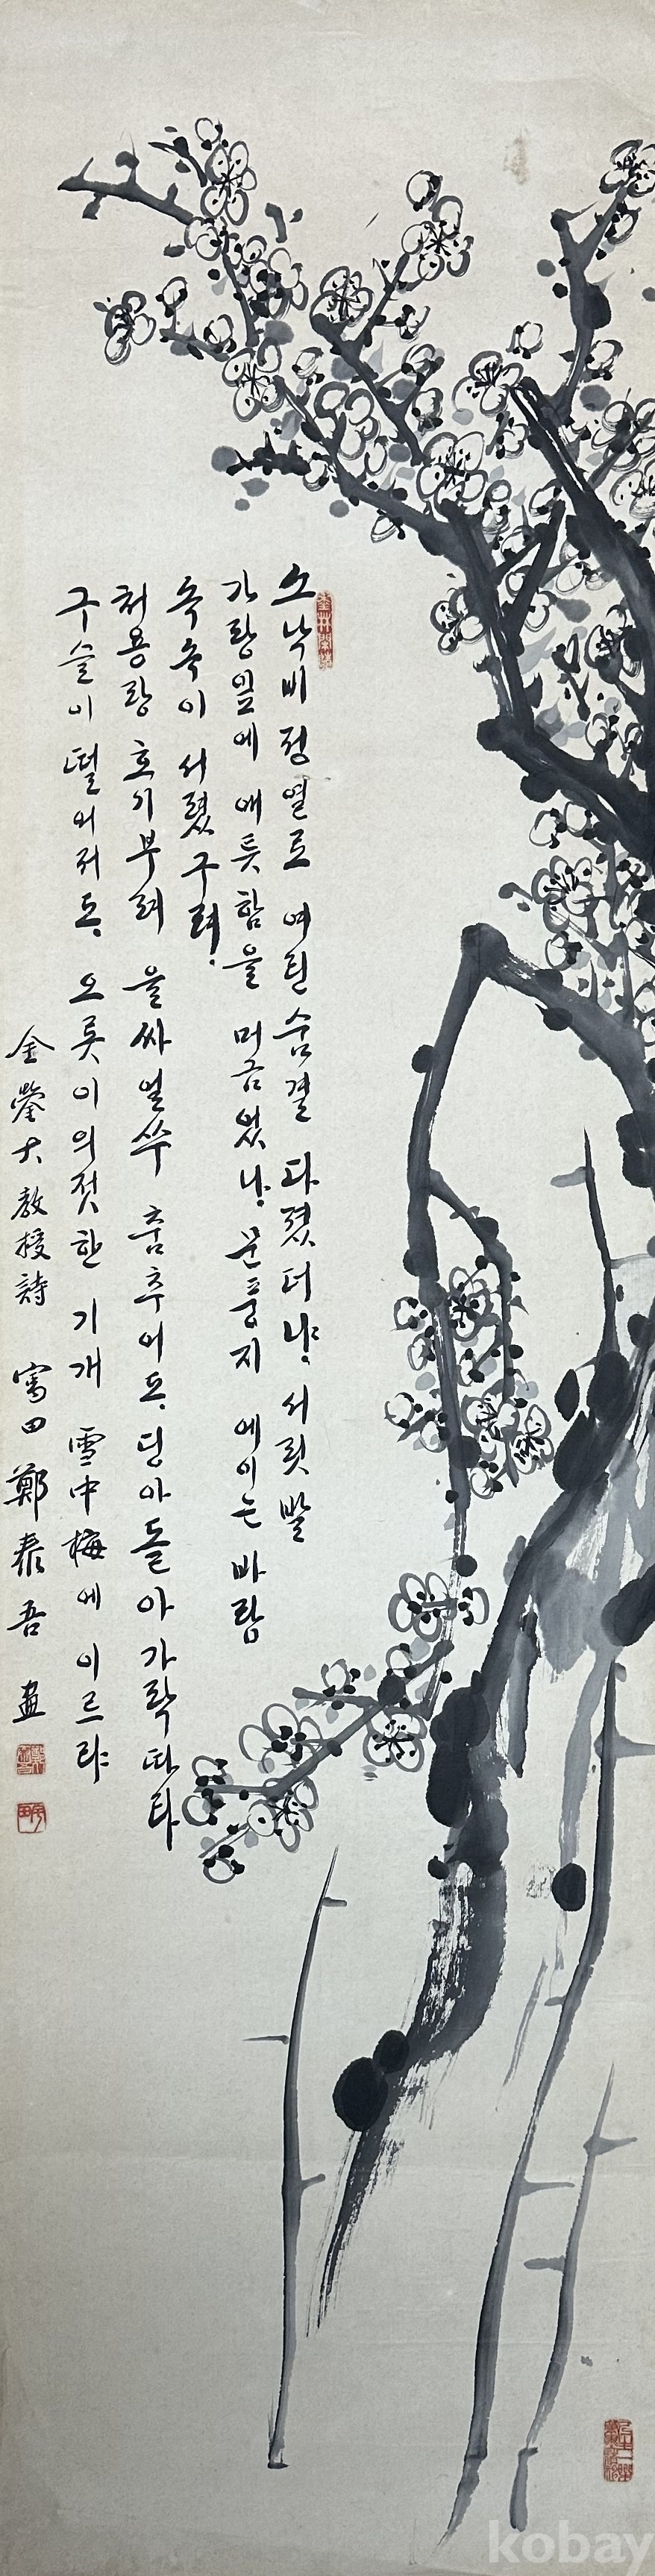 소낙비 정열로 여린 숨결 다졌더냐. 서릿발
가랑잎에 애틋함을 머금었나. 문풍지 에이는 바람
속속이 서렸구려.
처용랑 호기부려 을싸얼쑤 춤추어도. 딩아돌아 가락따라
구슬이 떨어져도. 오롯이 의젓한 기개 雪中梅에 이르랴
金 大 教授 詩 田 鄭泰吾 畫
kobay